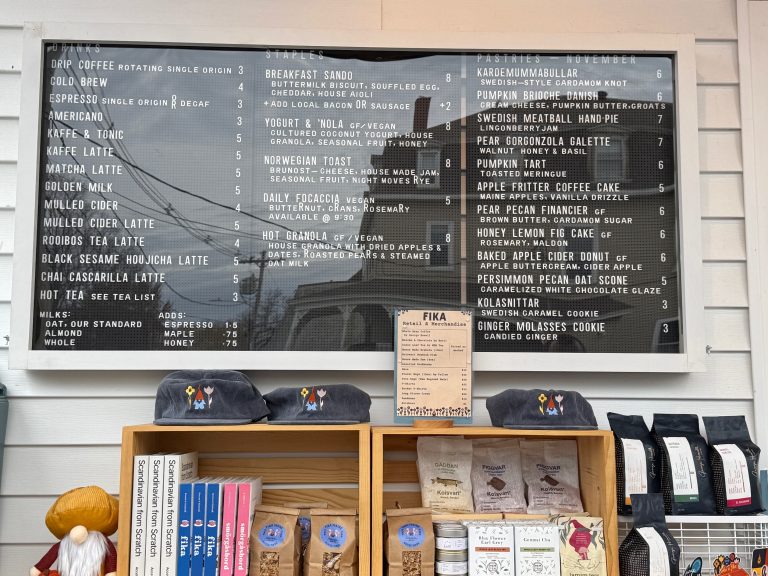 DRINKS
DRIP COFFEE ROTATING SINGLE ORIGIN 3
COLD BREW 4
ESPRESSO SINGLE ORIGIN OR DECAF 3
AMERICANO 3
KAFFE & TONIC 5
KAFFE LATTE 5
MATCHA LATTE 5
GOLDEN MILK 5
MULLED CIDER 4
MULLED CIDER LATTE 5
ROOIBOS TEA LATTE 4
BLACK SESAME HOUJICHA LATTE 5
CHAI CASCARILLA LATTE 5
HOT TEA SEE TEA LIST 3
MILKS:
OAT, OUR STANDARD
ALMOND
WHOLE
ADDS:
ESPRESSO 1.5
MAPLE .75
HONEY .75
STAPLES
BREAKFAST SANDO 8
BUTTERMILK BISCUIT, SOUFFLED EGG,
CHEDDAR, HOUSE AIOLI
+ADD LOCAL BACON OR SAUSAGE +2
YOGURT & 'NOLA GF/VEGAN 8
CULTURED COCONUT YOGURT, HOUSE
GRANOLA, SEASONAL FRUIT, HONEY
NORWEGIAN TOAST 8
BRUNOST- CHEESE, HOUSE MADE JAM,
SEASONAL FRUIT, NIGHT MOVES RYE
DAILY FOCACCIA VEGAN 5
BUTTERNUT, CRANS, ROSEMARY
AVAILABLE @ 9:30
HOT GRANOLA GF/VEGAN 8
HOUSE GRANOLA WITH DRIED APPLES &
DATES, ROASTED PEARS & STEAMED
OAT MILK
PASTRIES - NOVEMBER
KARDEMUMMABULLAR 6
SWEDISH-STYLE CARDAMOM KNOT
PUMPKIN BRIOCHE DANISH 6
CREAM CHEESE, PUMPKIN BUTTER, GROATS
SWEDISH MEATBALL HAND PIE 7
LINGONBERRY JAM
PEAR GORGONZOLA GALETTE 7
WALNUT HONEY & BASIL
PUMPKIN TART 6
TOASTED MERINGUE
APPLE FRITTER COFFEE CAKE 5
MAINE APPLES, VANILLA DRIZZLE
PEAR PECAN FINANCIER GF 6
BROWN BUTTER, CARDAMOM SUGAR
HONEY LEMON FIG CAKE GF 6
ROSEMARY, MALDON
BAKED APPLE CIDER DONUT GF 6
APPLE BUTTERCREAM, CIDER APPLE
PERSIMMON PECAN OAT SCONE 5
CARAMELIZED WHITE CHOCOLATE GLAZE
KOLASNITTAR 3
SWEDISH CARAMEL COOKIE
GINGER MOLASSES COOKIE 3
CANDIED GINGER
FIKA
Retail & Merchandise
FIKA
Scandinavian from Scratch
Scandinavian from Scratch
Scandinavian from Scratch
fika
fika
fika
smörgåsbord
smörgåsbord
Kolsvart
Kolsvart
Kolsvart